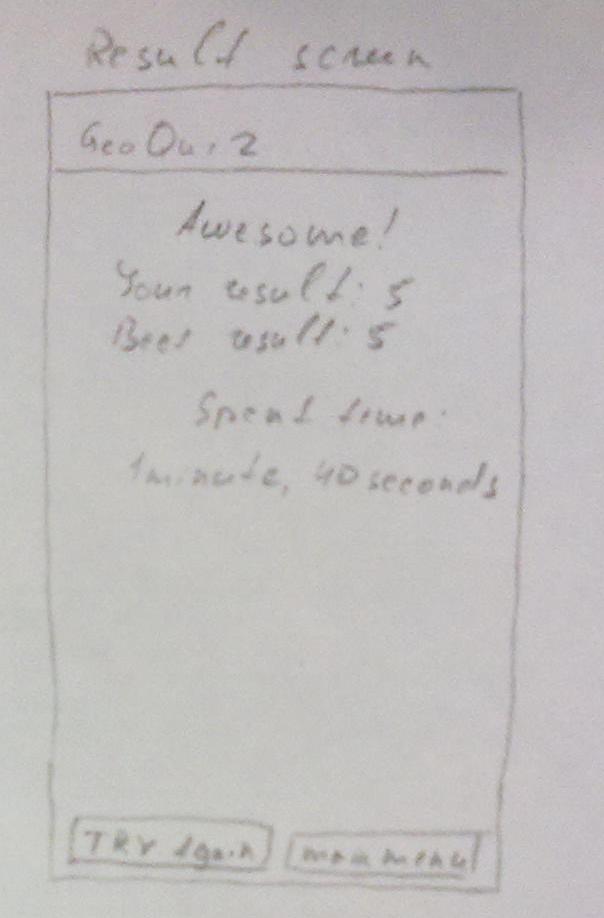 Result screen
GeoQuiz
Awesome!
Your result: 5
Best result: 5
Spent time:
1 minute, 40 seconds
TRY Again
main menu